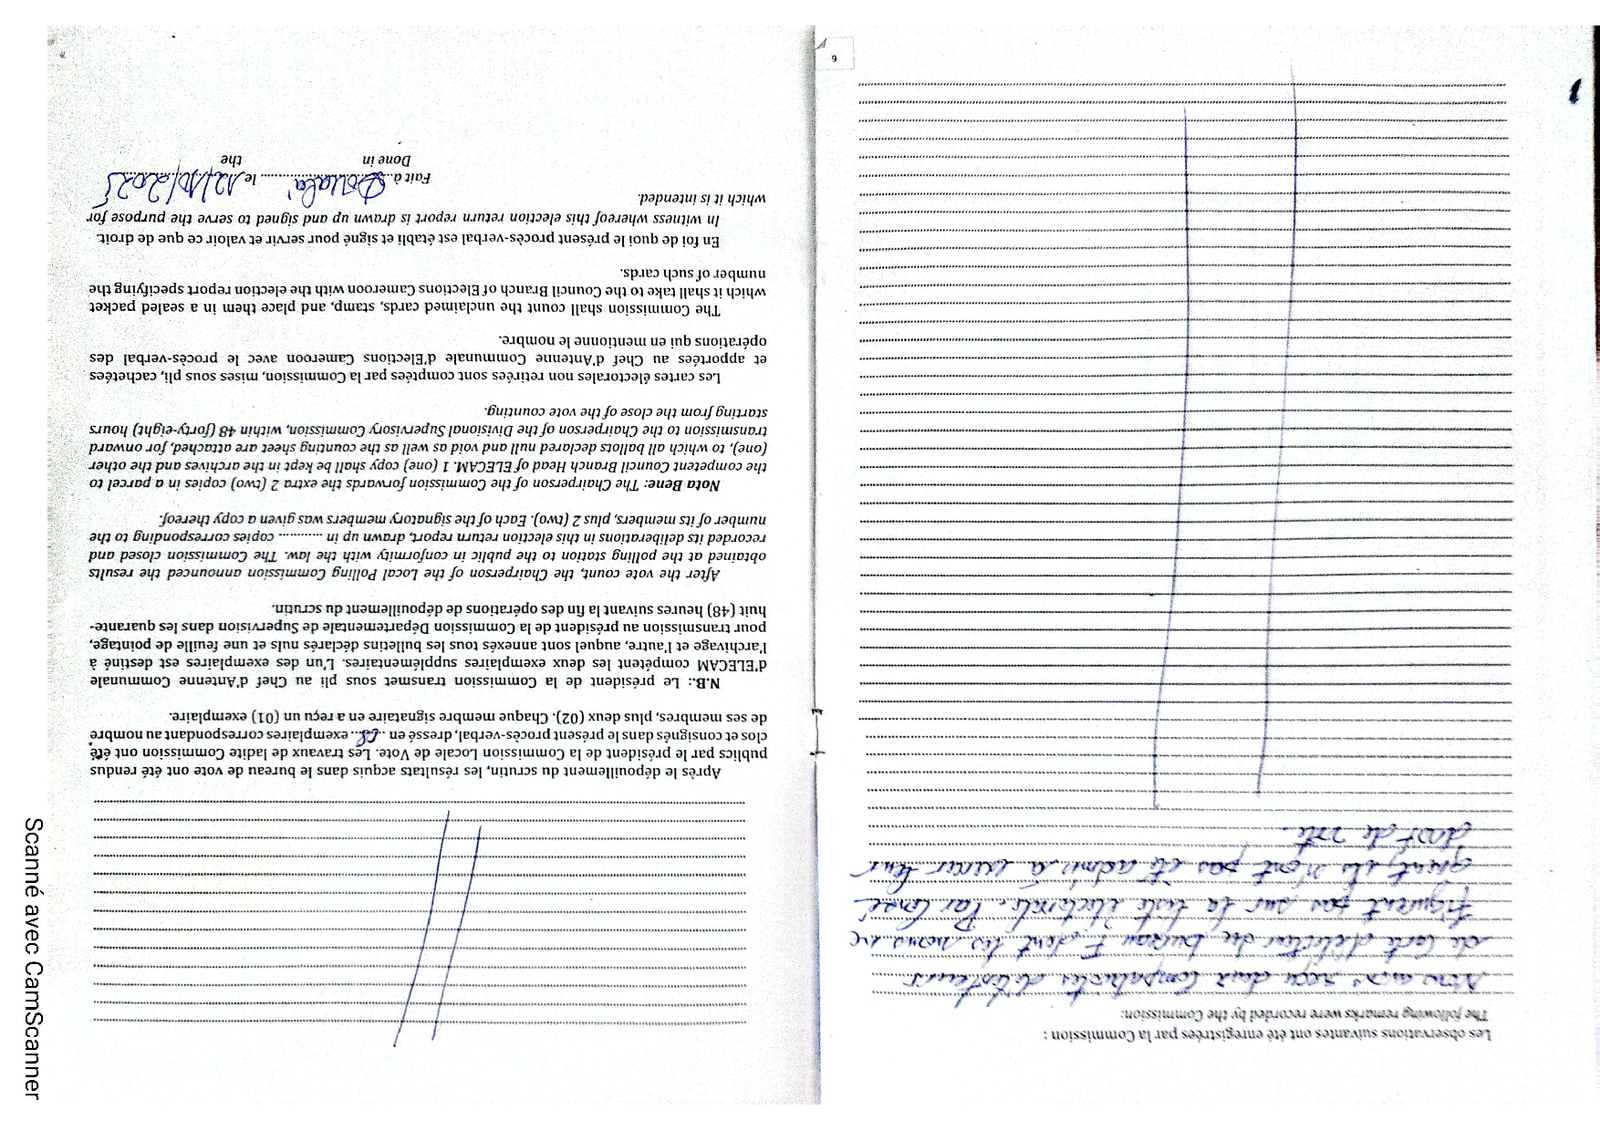 Les observations suivantes ont été enregistrées par la Commission :
The following remarks were recorded by the Commission:
Nous avons reçu deux compatriotes détenteurs
de carte d'électeur du bureau F, dont les noms ne
figurent pas sur la liste électorale. Par
quent, ils n'ont pas été admis à exercer leur
droit de vote.
Après le dépouillement du scrutin, les résultats acquis dans le bureau de vote ont été rendus
publics par le président de la Commission Locale de Vote. Les travaux de ladite Commission ont été
clos et consignés dans le présent procès-verbal, dressé en ........ exemplaires correspondant au nombre
de ses membres, plus deux (02). Chaque membre signataire en a reçu un (01) exemplaire.
N.B.: Le président de la Commission transmet sous pli au Chef d'Antenne Communale
d'ELECAM compétent les deux exemplaires supplémentaires. L'un des exemplaires est destiné à
l'archivage et l'autre, auquel sont annexés tous les bulletins déclarés nuls et une feuille de pointage,
pour transmission au président de la Commission Départementale de Supervision dans les quarante-
huit (48) heures suivant la fin des opérations de dépouillement du scrutin.
After the vote count, the Chairperson of the Local Polling Commission announced the results
obtained at the polling station to the public in conformity with the law. The Commission closed and
recorded its deliberations in this election return report, drawn up in ........... copies corresponding to the
number of its members, plus 2 (two). Each of the signatory members was given a copy thereof.
Nota Bene: The Chairperson of the Commission forwards the extra 2 (two) copies in a parcel to
the competent Council Branch Head of ELECAM. 1 (one) copy shall be kept in the archives and the other
(one), to which all ballots declared null and void as well as the counting sheet are attached, for onward
transmission to the Chairperson of the Divisional Supervisory Commission, within 48 (forty-eight) hours
starting from the close of the vote counting.
Les cartes électorales non retirées sont comptées par la Commission, mises sous pli, cachetées
et apportées au Chef d'Antenne Communale d'Elections Cameroon avec le procès-verbal des
opérations qui en mentionne le nombre.
The Commission shall count the unclaimed cards, stamp, and place them in a sealed packet
which it shall take to the Council Branch of Elections Cameroon with the election report specifying the
number of such cards.
En foi de quoi le présent procès-verbal est établi et signé pour servir et valoir ce que de droit.
In witness whereof this election return report is drawn up and signed to serve the purpose for
which it is intended.
Fait à Douala le 12/10/2025
Done in the
Scanné avec CamScanner